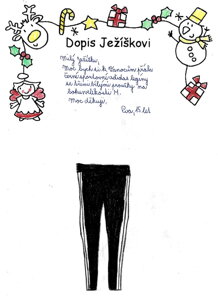 Dopis Ježíškovi
Milý Ježíšku,
Moc bych si k Vánocům přála
černé sportovní adidas legíny
se třemi bílými proužky na
boku velikosti M.
Moc děkuji.
Eva, 15 let